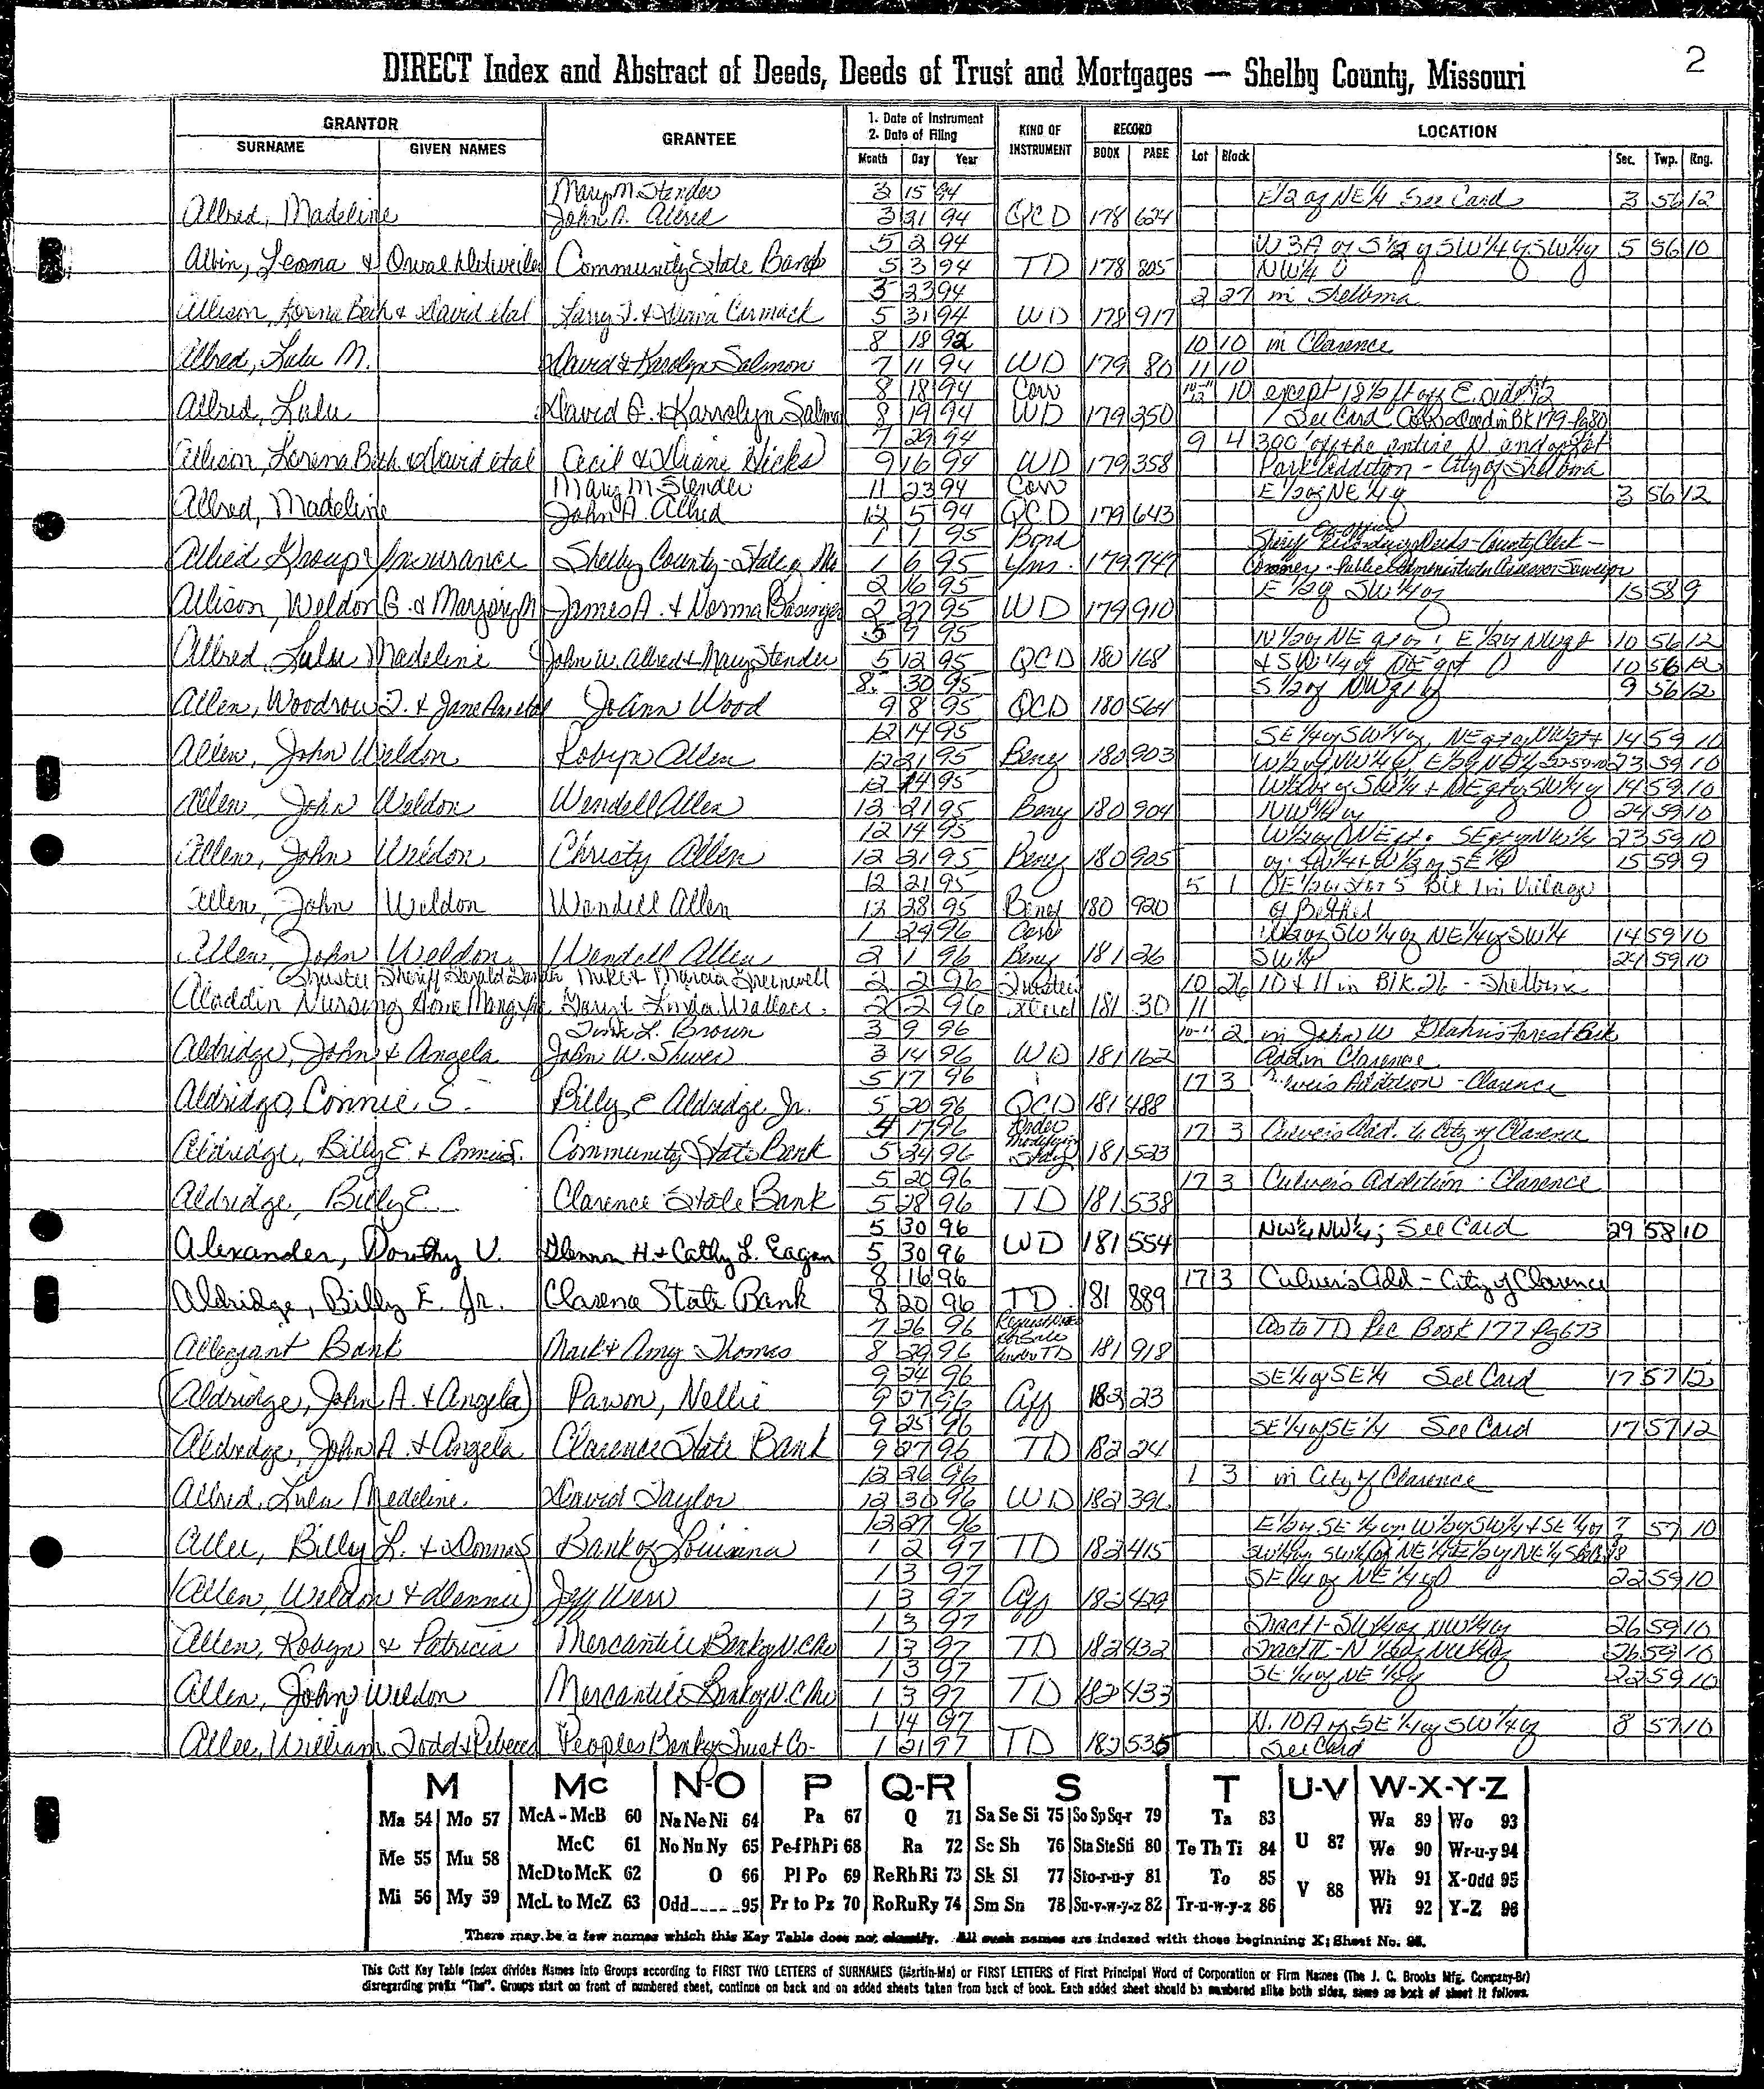 2
DIRECT Index and Abstract of Deeds, Deeds of Trust and Mortgages — Shelby County, Missouri
GRANTOR GRANTEE 1. Date of Instrument 2. Date of Filing KIND OF INSTRUMENT RECORD LOCATION
SURNAME GIVEN NAMES Month Day Year BOOK PAGE Lot Block Sec. Twp. Rng.
Mary M. Stender 3 15 94 E 1/2 of NE 1/4 See Card 3 56 12
Allred, Madeline John A. Allred 3 31 94 QCD 178 624
5 2 94 W 3A of S 1/2 of SW 1/4 of SW 1/4 5 56 10
Albin, Leona & Community State Bank 5 3 94 TD 178 805 NW 1/4
5 23 94 2 27 in Shelbina
Allison, Lorena Beth & David etal Larry J. & Diana Carmack 5 31 94 WD 178 917
8 18 92 10 10 in Clarence
Allred, Lulu M. David & Karolyn Salmon 7 11 94 WD 179 80 11 10
8 18 94 Corr 10 except 18 1/2 ft off E. side
Allred, Lulu David G. & Karrolyn Salmon 8 19 94 WD 179 350 See Card Corrs deed in BK 179 Pg 80
7 29 94 9 4 300' off the entire N. end of Lot
Allison, Lorena Beth & David etal Cecil & Diane Hicks 9 16 94 WD 179 358 Park Addition - City of Shelbina
Mary M Stender 11 23 94 Corr E 1/2 of NE 1/4 of 3 56 12
Allred, Madeline John A. Allred 12 5 94 QCD 179 643
1 1 95 Bond
Allied Group Insurance Shelby County - State of Mo 1 6 95 179 747
2 16 95 E 1/2 of SW 1/4 of 15 58 9
Allison, Weldon G. & Marjorie M James A. & Norma Basinger 2 27 95 WD 179 910
5 9 95 W 1/2 of NE qr of; E 1/2 of NW qr 10 56 12
Allred, Lulu Madeline John W. Allred & Mary Stender 5 12 95 QCD 180 168 & SW 1/4 of 10 56 12
8 30 95 S 1/2 of NW qr of 9 56 12
Allen, Woodrow J. & Jane Ann etal JoAnn Wood 9 8 95 QCD 180 564
12 14 95 SE 1/4 of SW 1/4 of, NE qr of NW qr & 14 59 10
Allen, John Weldon Robyn Allen 12 21 95 Beny 180 903 W 1/2 of NW 1/4 of, E 1/2 of NE 1/4 22-59-10 23 59 10
12 14 95 SW 1/4 + NE qr of SW 1/4 of 14 59 10
Allen, John Weldon Wendell Allen 12 21 95 Beny 180 904 NW 1/4 of 24 59 10
12 14 95 W 1/2 of NE qr. SE qr of NW 1/4 23 59 10
Allen, John Weldon Christy Allen 12 21 95 Beny 180 905 15 59 9
12 21 95 5 1 E 1/2 of Lot 5 Blk 1 in Village
Allen, John Weldon Wendell Allen 12 28 95 Beny 180 920 of Bethel
1 29 96 Corr W 1/2 of SW 1/4 of NE 1/4 of SW 1/4 14 59 10
Allen, John Weldon Wendell Allen 2 1 96 Beny 181 26 24 59 10
Trustee Sheriff Mike & Marcia Greenwell 2 2 96 Trustees 10 26 10 & 11 in Blk 26 - Shelbina
Aladdin Nursing Home Linda Wallace 2 2 96 Deed 181 30 11
Tina L. Brown 3 9 96 10-11 2 in John W. Forest Park
Aldridge, John & Angela John W. 3 14 96 WD 181 162 Add in Clarence
5 17 96 17 3 Culvers Addition - Clarence
Aldridge, Connie S. Billy E Aldridge Jr. 5 20 96 QCD 181 488
4 17 96 Order 17 3 Culver's Add. to City of Clarence
Aldridge, Billy E. & Connie S. Community State Bank 5 24 96 Modifying Stay 181 523
5 20 96 17 3 Culver's Addition - Clarence
Aldridge, Billy E. Clarence State Bank 5 28 96 TD 181 538
5 30 96 NW 1/4 NW 1/4; See Card 29 58 10
Alexander, Dorothy V. Glennon H. & Cathy L. Eagan 5 30 96 WD 181 554
8 16 96 17 3 Culver's Add - City of Clarence
Aldridge, Billy E. Jr. Clarence State Bank 8 20 96 TD 181 889
7 26 96 Request Notice of Sale As to TD Rec Book 177 Pg 673
Allegiant Bank Mark & Amy Thomas 8 29 96 under TD 181 918
9 24 96 SE 1/4 of SE 1/4 See Card 17 57 12
(Aldridge, John A. & Angela) Parson, Nellie 9 27 96 Aff 182 23
9 25 96 SE 1/4 of SE 1/4 See Card 17 57 12
Aldridge, John A. & Angela Clarence State Bank 9 27 96 TD 182 24
12 26 96 1 3 in City of Clarence
Allred, Lulu Madeline David Taylor 12 30 96 WD 182 396
12 27 96 E 1/2 of SE 1/4 of W 1/2 of SW 1/4 & SE 1/4 of 7 57 10
Allee, Billy L. & Donna S Bank of Louisiana 1 2 97 TD 182 415
1 3 97 SE 1/4 of NE 1/4 of 22 59 10
(Allen, Weldon & Glennie) Jeff Weir 1 3 97 Aff 182 429
1 3 97 Tract I - SW 1/4 of NW 1/4 of 26 59 10
Allen, Robyn & Patricia Mercantile Bank of N.C. Mo 1 3 97 TD 182 432 Tract II - N 1/2 of NW 1/4 of 26 59 10
1 3 97 SE 1/4 of NE 1/4 of 22 59 10
Allen, John Weldon Mercantile Bank of N.C. Mo 1 3 97 TD 182 433
1 14 97 N. 10A of SE 1/4 of SW 1/4 of 8 57 10
Allee, William Todd & Rebecca Peoples Bank & Trust Co- 1 21 97 TD 182 535 See Card
M Mc N-O P Q-R S T U-V W-X-Y-Z
Ma 54 Mo 57 McA - McB 60 Na Ne Ni 64 Pa 67 Q 71 Sa Se Si 75 So Sp Sq-r 79 Ta 83 Wa 89 Wo 93
McC 61 No Nu Ny 65 Pe-f Ph Pi 68 Ra 72 Sc Sh 76 Sta Ste Sti 80 Te Th Ti 84 U 87 We 90 Wr-u-y 94
Me 55 Mu 58 McD to McK 62 O 66 Pl Po 69 Re Rh Ri 73 Sk Sl 77 Sto-r-u-y 81 To 85 V 88 Wh 91 X-Odd 95
Mi 56 My 59 McL to McZ 63 Odd-----95 Pr to Pz 70 Ro Ru Ry 74 Sm Sn 78 Su-v-w-y-z 82 Tr-u-w-y-z 86 Wi 92 Y-Z 96
There may be a few names which this Key Table does not classify. All such names are indexed with those beginning X; Sheet No. 95.
This Cott Key Table Index divides Names into Groups according to FIRST TWO LETTERS of SURNAMES (Martin-Ma) or FIRST LETTERS of First Principal Word of Corporation or Firm Names (The J. C. Brooks Mfg. Company-Br)
disregarding prefix "The". Groups start on front of numbered sheet, continue on back and on added sheets taken from back of book. Each added sheet should be numbered alike both sides, same as back of sheet it follows.